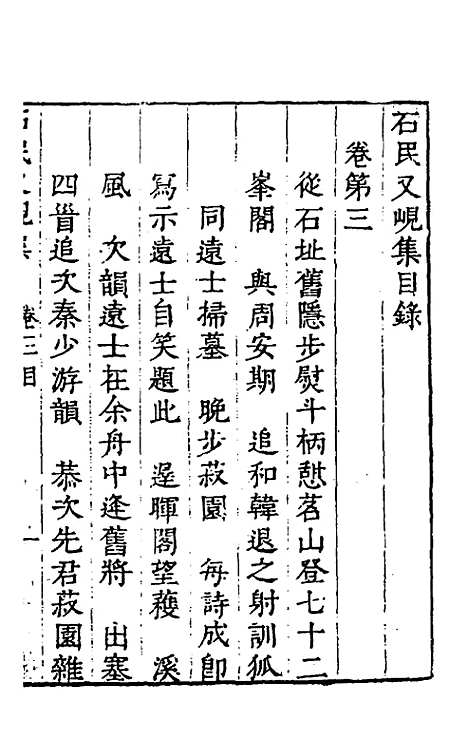 石民又峴集目錄
卷第三
從石址舊隱步熨斗柄憇茗山登七十二
峯閣　與周安期　追和韓退之射訓狐
同遠士掃墓　晚步菽園　每詩成卽
寫示遠士自笑題此　遲暉閣望穫　溪
風　次韻遠士在余舟中逢舊將　出塞
四首追次秦少游韻　恭次先君菽園雜
石民又峴集　卷三目　一